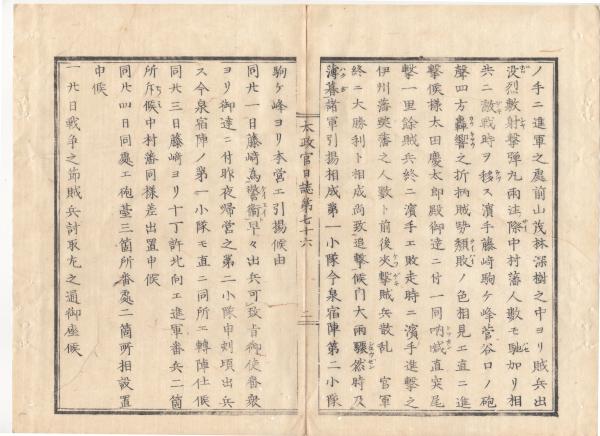 ノ手ニ進軍之處前山茂林深樹之中ヨリ賊兵出
没烈敷射撃彈丸雨注際中村藩人數モ馳加リ相
共ニ敵戰時ヲ移ス濱手藤崎駒ケ峰菅谷口ノ砲
聲四方轟響之折柄賊勢頽敗ノ色相見エ直ニ進
撃候様太田慶太郎殿御達ニ付一同吶喊直突尾
撃一里餘賊兵終ニ濱手エ敗走時ニ濱手進撃之
伊州藩藝藩之人數ト前後夾撃賊兵散乱 官軍
終ニ大勝利ト相成尚致追撃候門大雨驟然時及
薄暮諸軍引揚相成第一小隊今泉宿陣第二小隊
太政官日誌第七十六
二
駒ケ峰ヨリ本營エ引揚候由
同廿一日藤崎為警衞早々出兵可致旨御使番衆
ヨリ御達ニ付昨夜歸營之第二小隊申刺頃出兵
ス今泉宿陣ノ第一小隊モ直ニ同所エ轉陣仕候
同廿三日藤崎ヨリ十丁許北向エ進軍番兵二箇
所斥候中村藩同様差出置申候
同廿四日同處エ砲䑓三箇所番處二箇所相設置
申候
一廿日戰争之節賊兵討取左之通御座候